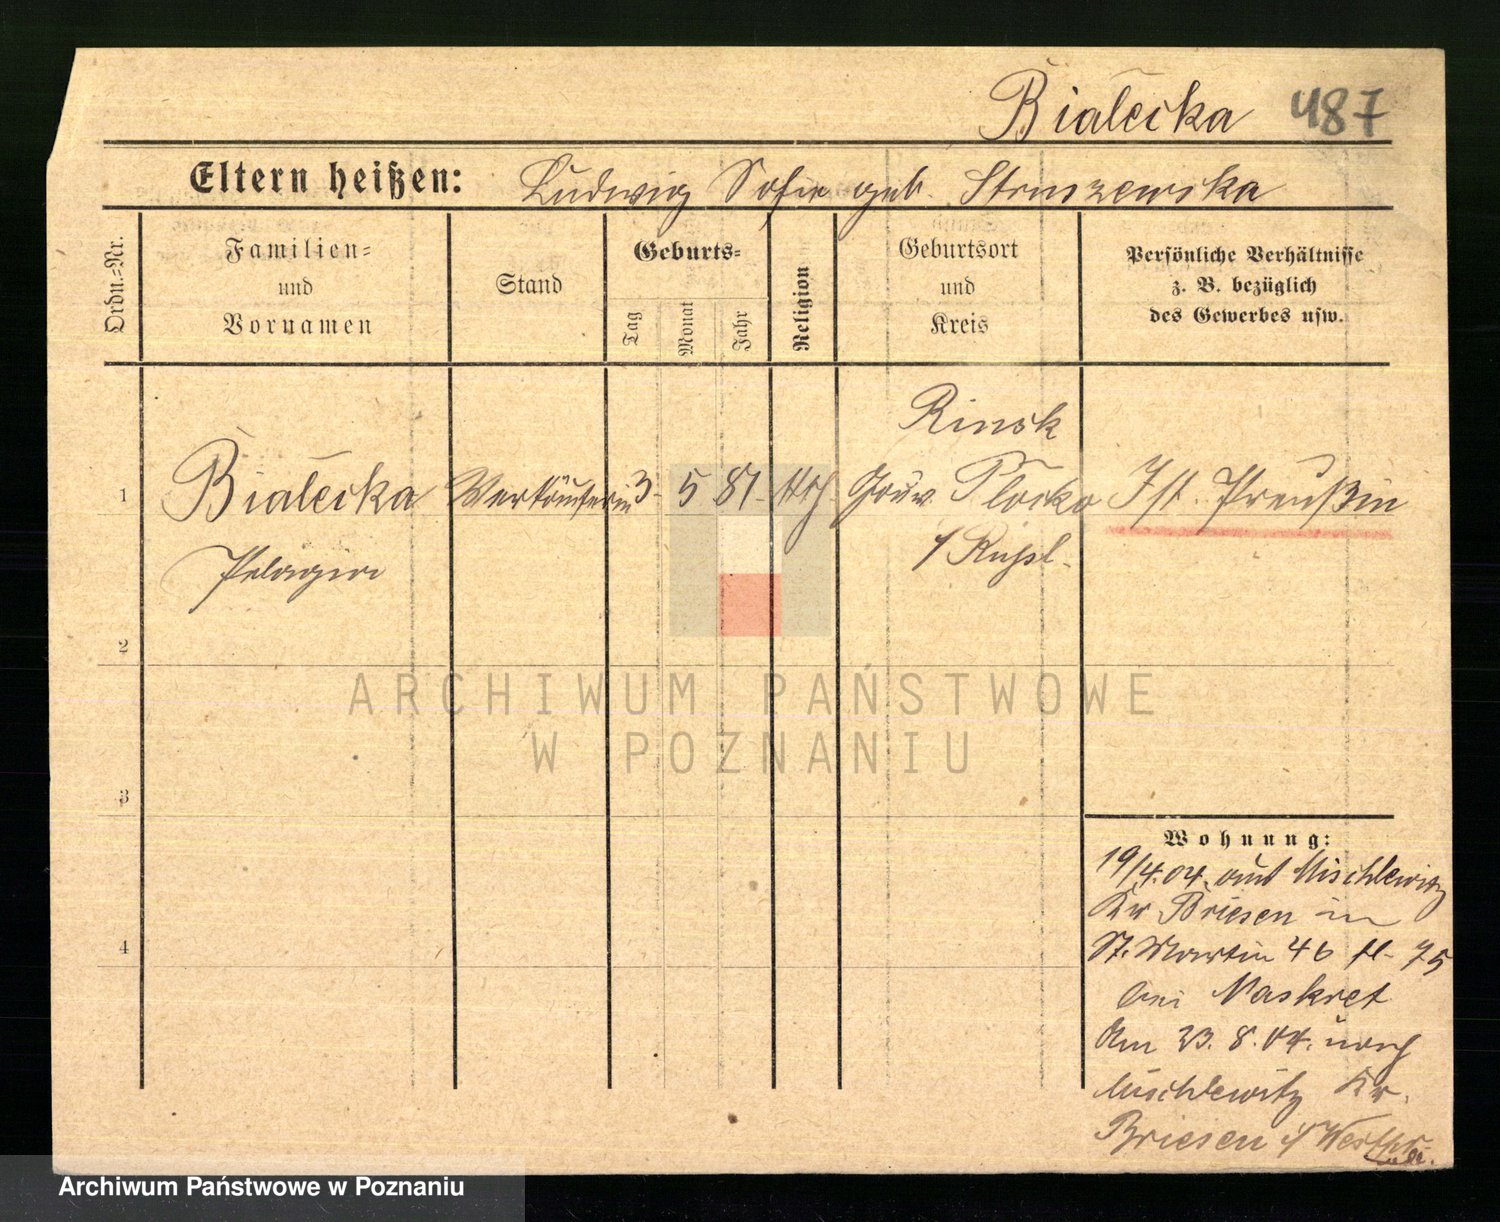 Bialecka 487
Eltern heißen: Ludwig Sofie geb. Struszewska
Ordn.=Nr.
Familien=
und
Vornamen
Stand
Geburts=
Tag
Monat
Jahr
Religion
Geburtsort
und
Kreis
Persönliche Verhältnisse
z. B. bezüglich
des Gewerbes usw.
1
Bialecka
Pelagia
Verkäuferin
3
5
81
kth
Rinsk
Gouv. Plocko
i/Rußl.
Ist Preußin
2
3
4
Wohnung:
19/4.04. aus Mischlewitz
Kr Briesen in
St. Martin 46 II- 75
bei Maskret
Am 23. 8. 04. nach
Mischlewitz Kr.
Briesen i/Westpr.
ARCHIWUM PAŃSTWOWE
W POZNANIU
Archiwum Państwowe w Poznaniu